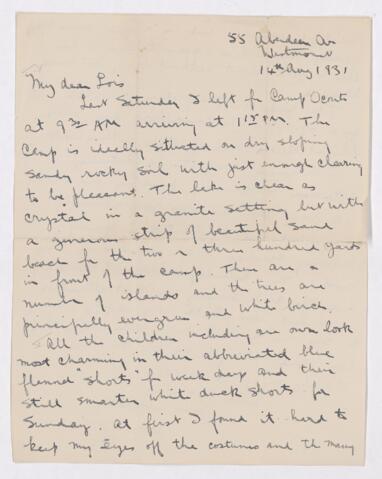 55 Aberdeen Av
Westmount
14th Aug 1931
My dear Lois
Last Saturday I left for Camp
at 9 30 AM arriving at 1 15 PM. The
Camp is ideally situated on dry sloping
sandy rocky soil with just enough clearing
to be pleasant. The lake is clear as
crystal in a granite setting but with
a generous strip of beautiful sand
beach for the two or three hundred yards
in front of the camp. There are a
number of islands and the trees are
principally evergreen and white birch.
All the children including our own look
most charming in their abbreviated blue
flannel "shorts" for week days and their
still smarter white duck shorts for
Sunday. At first I found it hard to
keep my eyes off the costumes and the many